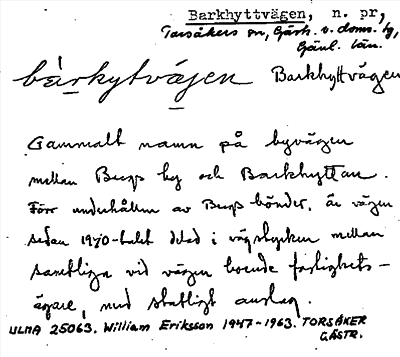 Barkhyttvägen, n. pr,
Torsåkers sn, Gästr. v. doms. tg,
Gävl. län.
bàrkytvä̀jen Barkhyttvägen
Gammalt namn på byvägen
mellan Bergs by och Barkhyttan.
Förr underhållen av Bergs bönder, är vägen
sedan 1940-talet delad i vägstycken mellan
samtliga vid vägen boende fastighets-
ägare, med statligt anslag.
ULMA 25063. William Eriksson 1947-1963. TORSÅKER
GÄSTR.